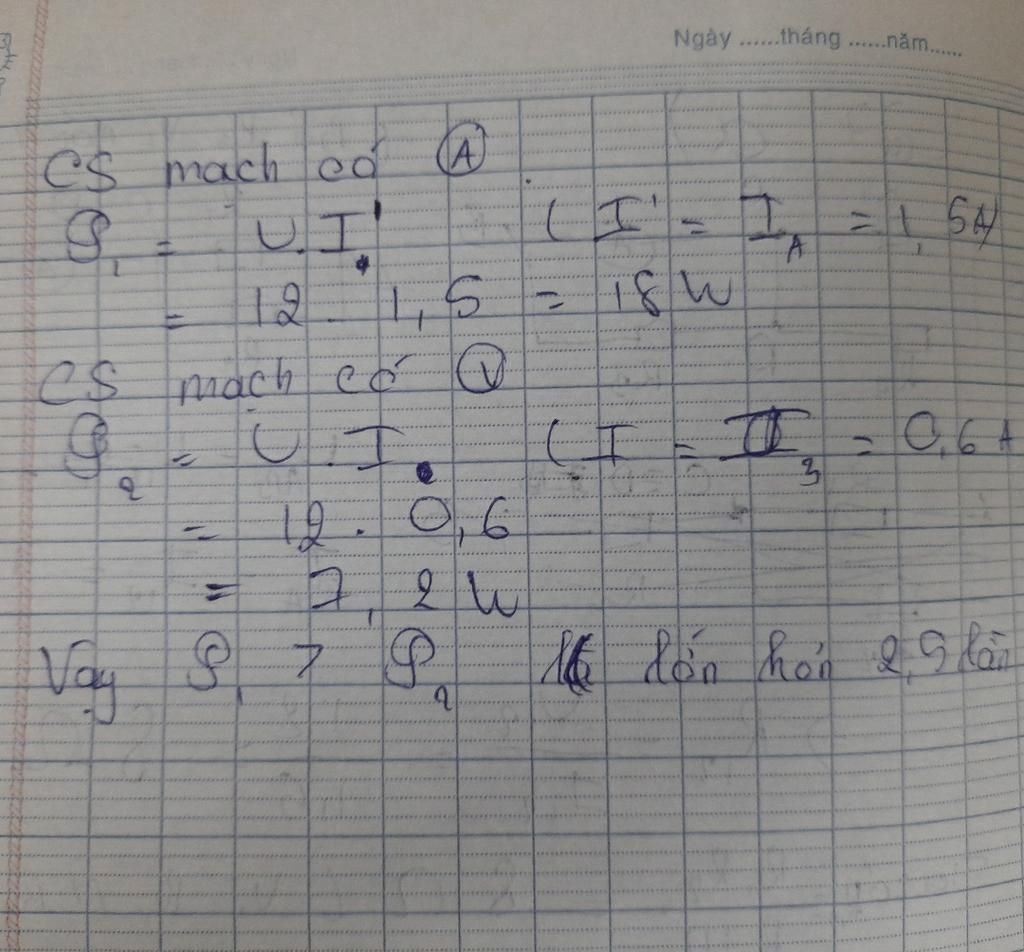 Ngày ......tháng ......năm......
CS mạch có (A)
P₁ = U.I' (I' = I_A = 1,5A)
= 12 . 1,5 = 18 W
CS mạch có (V)
P₂ = U.I (I = I₃ = 0,6 A
= 12 . 0,6
= 7,2 W
Vậy P₁ > P₂ lớn hơn 2,5 lần